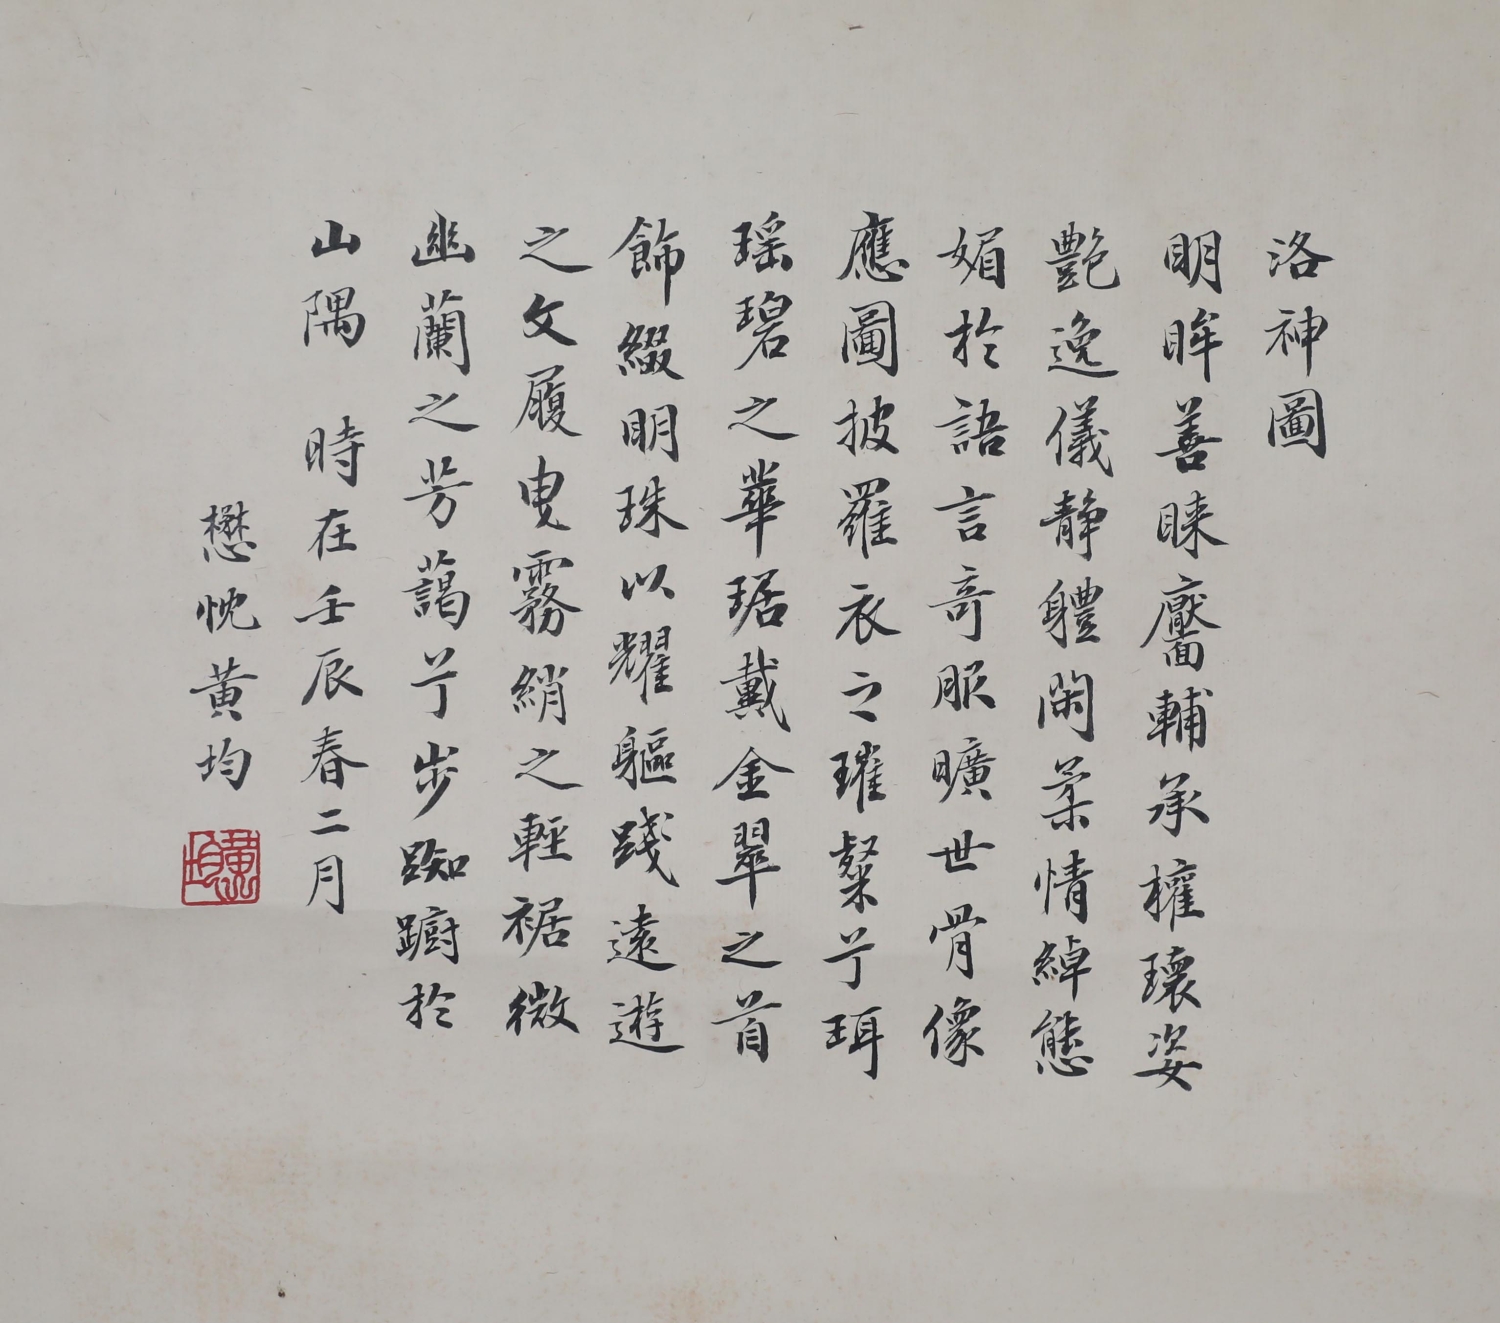 洛神圖
明眸善睞靨輔承權瓌姿
艷逸儀静軆閑柔情綽態
媚於語言奇服曠世骨像
應圖披羅衣之璀粲兮珥
瑶碧之華琚戴金翠之首
飾綴明珠以耀軀踐遠遊
之文履曳霧綃之輕裾微
幽蘭之芳藹兮步踟躕於
山隅 時在壬辰春二月
懋忱黄均
黄均